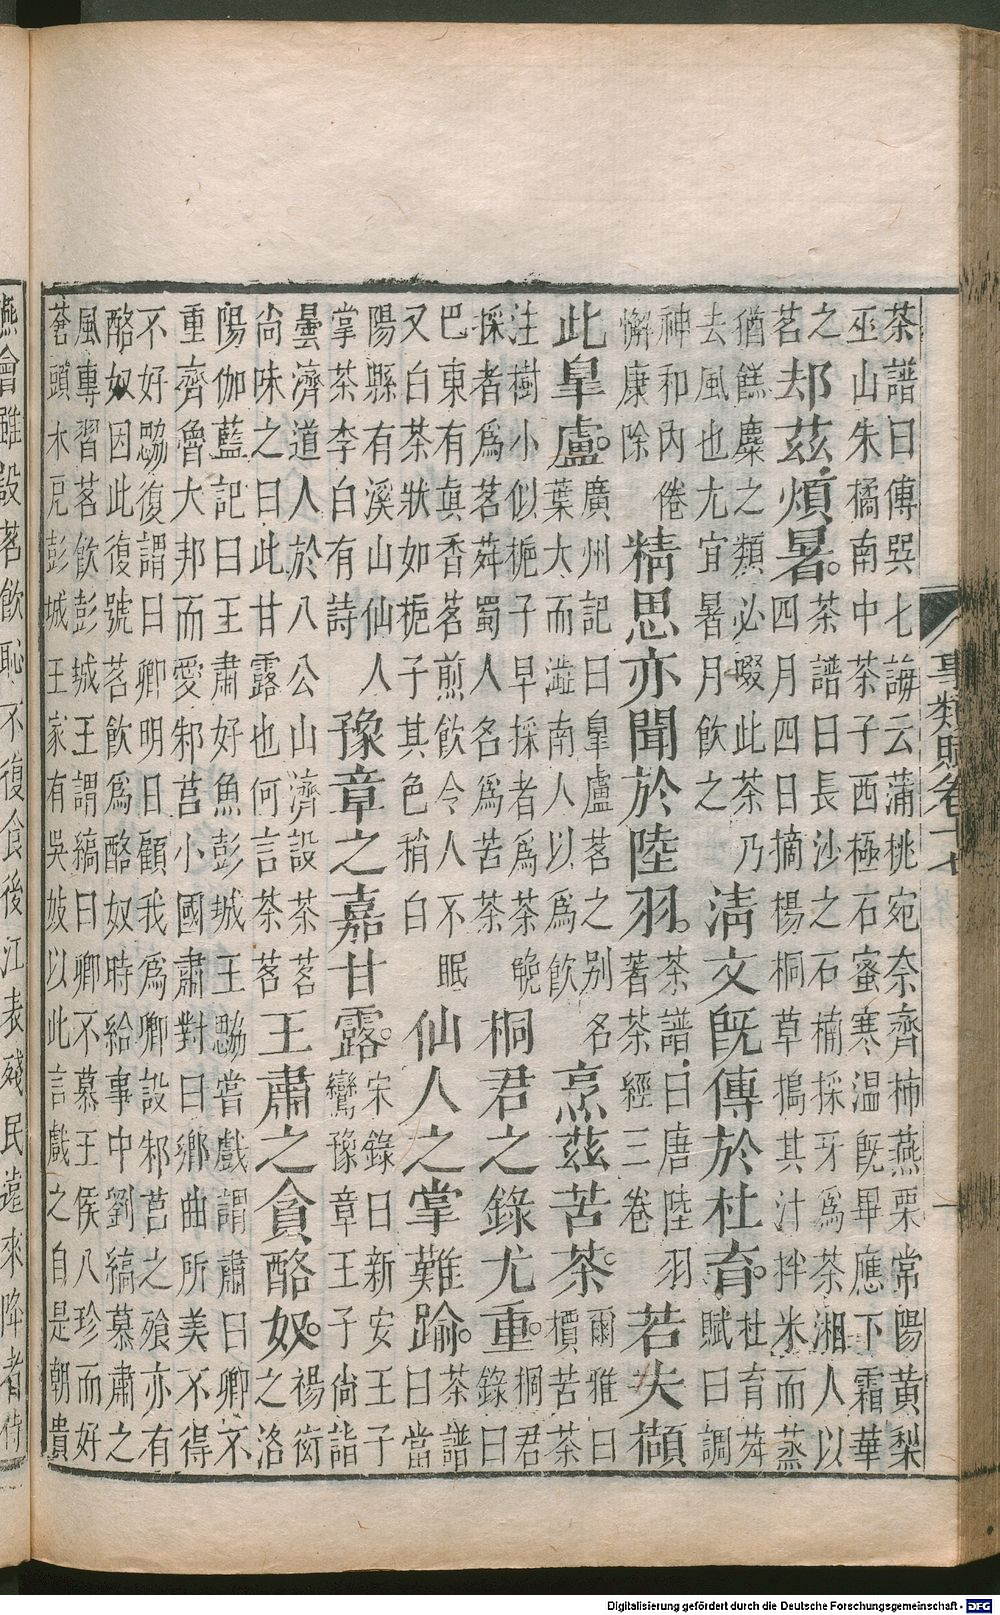 茶譜曰傅巽七誨云蒲桃宛柰齊柿燕栗常陽黃梨
巫山朱橘南中茶子西極石蜜寒溫旣畢應下霜華
之茗却茲煩暑。茶譜曰長沙之石楠採牙爲茶湘人以
四月四日摘楊桐草搗其汁拌米而蒸
猶餻麋之類必啜此茶乃
去風也尤宜暑月飲之清文旣傳於杜育。杜育荈
賦曰調
神和內倦
懈康除精思亦聞於陸羽。茶譜曰唐陸羽
著茶經三卷若夫擷
此皐盧。廣州記曰皐盧茗之別名
葉大而澁南人以爲飲烹茲苦茶。爾雅曰
檟苦茶
注樹小似梔子早採者爲茶晚
採者爲茗荈蜀人名爲苦茶桐君之錄尤重。桐君
錄曰
巴東有眞香茗煎飲令人不眠
又白茶狀如梔子其色稍白仙人之掌難踰。茶譜
曰當
陽縣有溪山仙人
掌茶李白有詩豫章之嘉甘露。宋錄曰新安王子
鸞豫章王子尙詣
曇濟道人於八公山濟設茶茗
尙味之曰此甘露也何言茶茗王肅之貪酪奴。楊衒
之洛
陽伽藍記曰王肅好魚彭城王勰嘗戲謂肅曰卿不
重齊魯大邦而愛邾莒小國肅對曰鄉曲所美不得
不好勰復謂曰卿明日顧我爲卿設邾莒之飱亦有
酪奴因此復號茗飲爲酪奴時給事中劉縞慕肅之
風專習茗飲彭城王謂縞曰卿不慕王侯八珍而好
蒼頭水厄彭城王家有吳妓以此言戲之自是朝貴
讌會雖設茗飲恥不復食後江表殘民遠來降者
事類賦卷十七
Digitalisierung gefördert durch die Deutsche Forschungsgemeinschaft - DFG